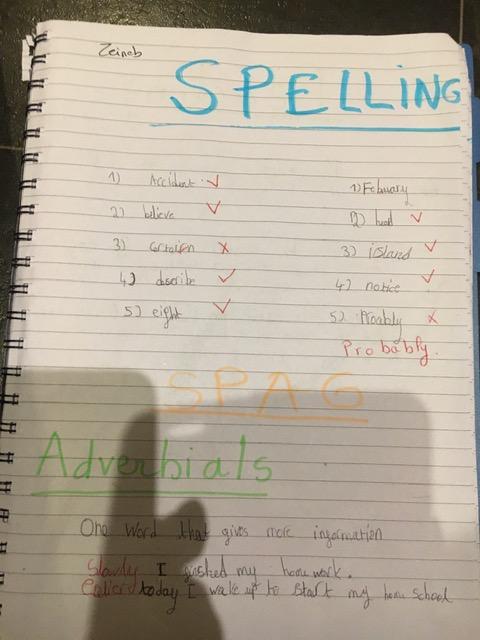 Zeineb
SPELLING
1) Accident ✓
2) believe ✓
3) Certaifn x
4) describe ✓
5) eight ✓
1) Febuary
2) head ✓
3) island ✓
4) notice ✓
5) Proably x
Probably.
SPAG
Adverbials
One word that gives more information
Slowly I finished my home work.
Earlier today I wake up to start my home school